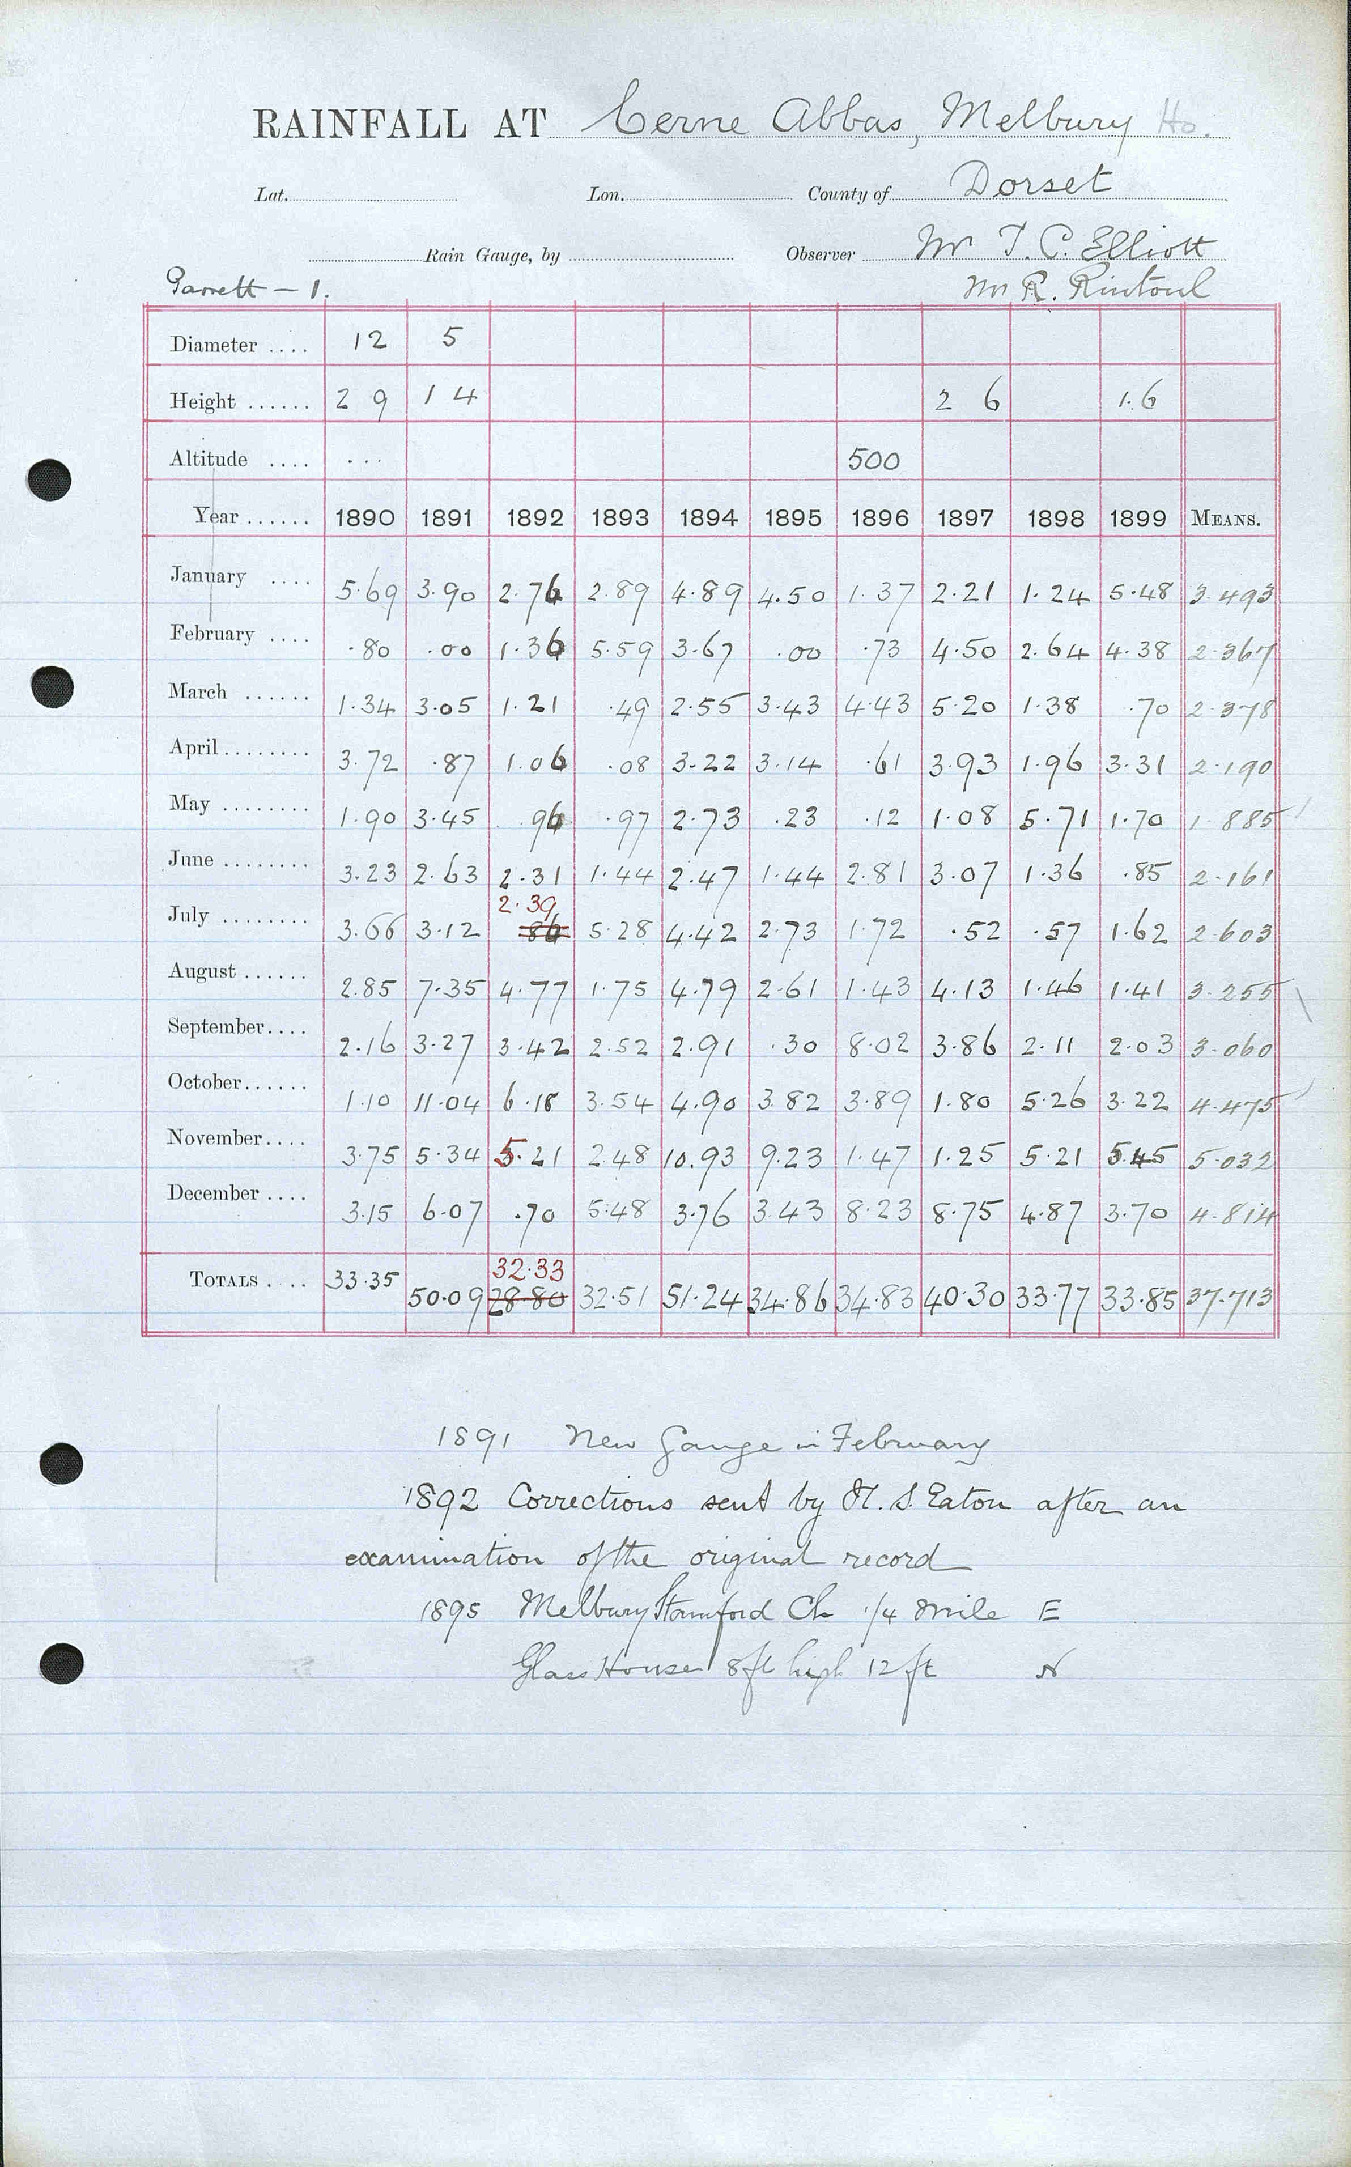 RAINFALL AT Cerne Abbas, Melbury Ho.
Lat. Lon. County of Dorset
Rain Gauge, by Observer Mr T. C. Elliott
Garrett — 1. Mr R. Rintoul
Diameter .... 12 5
Height ...... 2 9 1 4 2 6 1.6
Altitude .... ... 500
Year ...... 1890 1891 1892 1893 1894 1895 1896 1897 1898 1899 MEANS.
January .... 5.69 3.90 2.76 2.89 4.89 4.50 1.37 2.21 1.24 5.48 3.493
February .... .80 .00 1.36 5.59 3.67 .00 .73 4.50 2.64 4.38 2.367
March ...... 1.34 3.05 1.21 .49 2.55 3.43 4.43 5.20 1.38 .70 2.378
April........ 3.72 .87 1.06 .08 3.22 3.14 .61 3.93 1.96 3.31 2.190
May ........ 1.90 3.45 .96 .97 2.73 .23 .12 1.08 5.71 1.70 1.885
June ........ 3.23 2.63 2.31 1.44 2.47 1.44 2.81 3.07 1.36 .85 2.161
2.39
July ........ 3.66 3.12 .86 5.28 4.42 2.73 1.72 .52 .57 1.62 2.603
August ...... 2.85 7.35 4.77 1.75 4.79 2.61 1.43 4.13 1.46 1.41 3.255
September.... 2.16 3.27 3.42 2.52 2.91 .30 8.02 3.86 2.11 2.03 3.060
October...... 1.10 11.04 6.18 3.54 4.90 3.82 3.89 1.80 5.26 3.22 4.475
November.... 3.75 5.34 5.21 2.48 10.93 9.23 1.47 1.25 5.21 5.45 5.032
December .... 3.15 6.07 .70 5.48 3.76 3.43 8.23 8.75 4.87 3.70 4.814
32.33
TOTALS .... 33.35 50.09 28.80 32.51 51.24 34.86 34.83 40.30 33.77 33.85 37.713
1891 New Gauge in February
1892 Corrections sent by H. S. Eaton after an
examination of the original record
1895 Melbury Stamford Ch 1/4 mile E
Glass Houses 8ft high 12 ft N